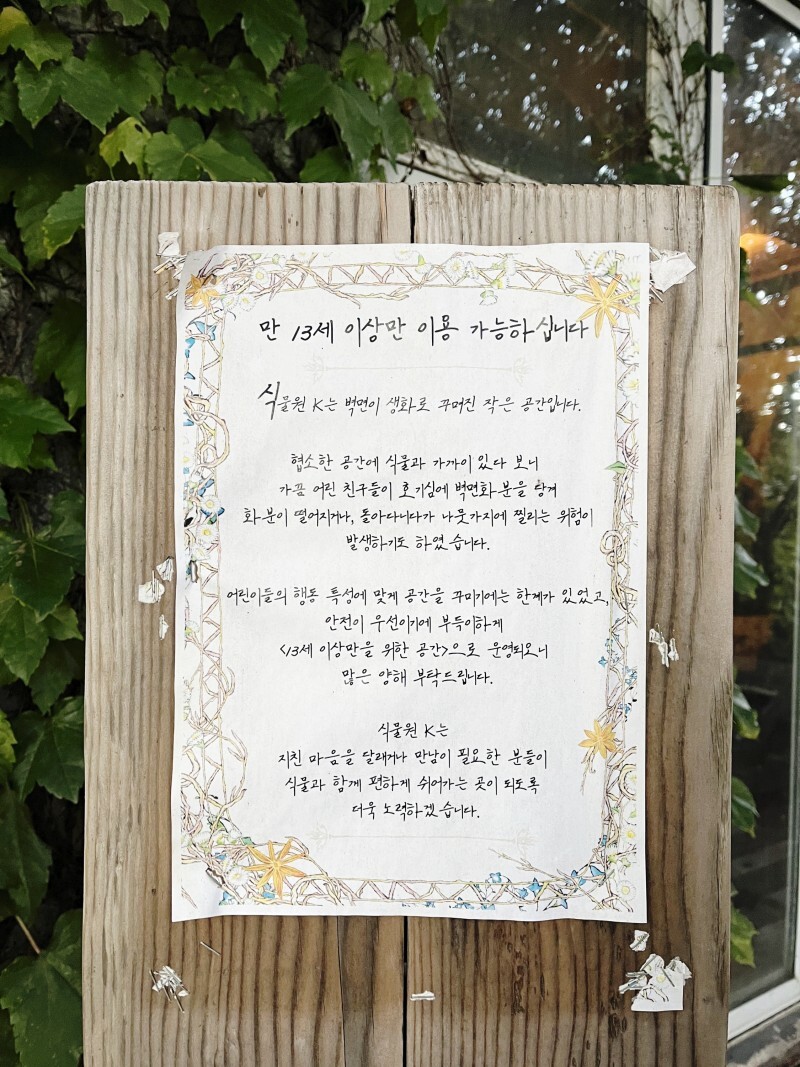 만 13세 이상만 이용 가능하십니다
식물원 K는 벽면이 생화로 꾸며진 작은 공간입니다.
협소한 공간에 식물과 가까이 있다 보니
가끔 어린 친구들이 호기심에 벽면화분을 당겨
화분이 떨어지거나, 돌아다니다가 나뭇가지에 찔리는 위험이
발생하기도 하였습니다.
어린이들의 행동 특성에 맞게 공간을 꾸미기에는 한계가 있었고,
안전이 우선이기에 부득이하게
<13세 이상만을 위한 공간>으로 운영되오니
많은 양해 부탁드립니다.
식물원 K는
지친 마음을 달래거나 만남이 필요한 분들이
식물과 함께 편하게 쉬어가는 곳이 되도록
더욱 노력하겠습니다.